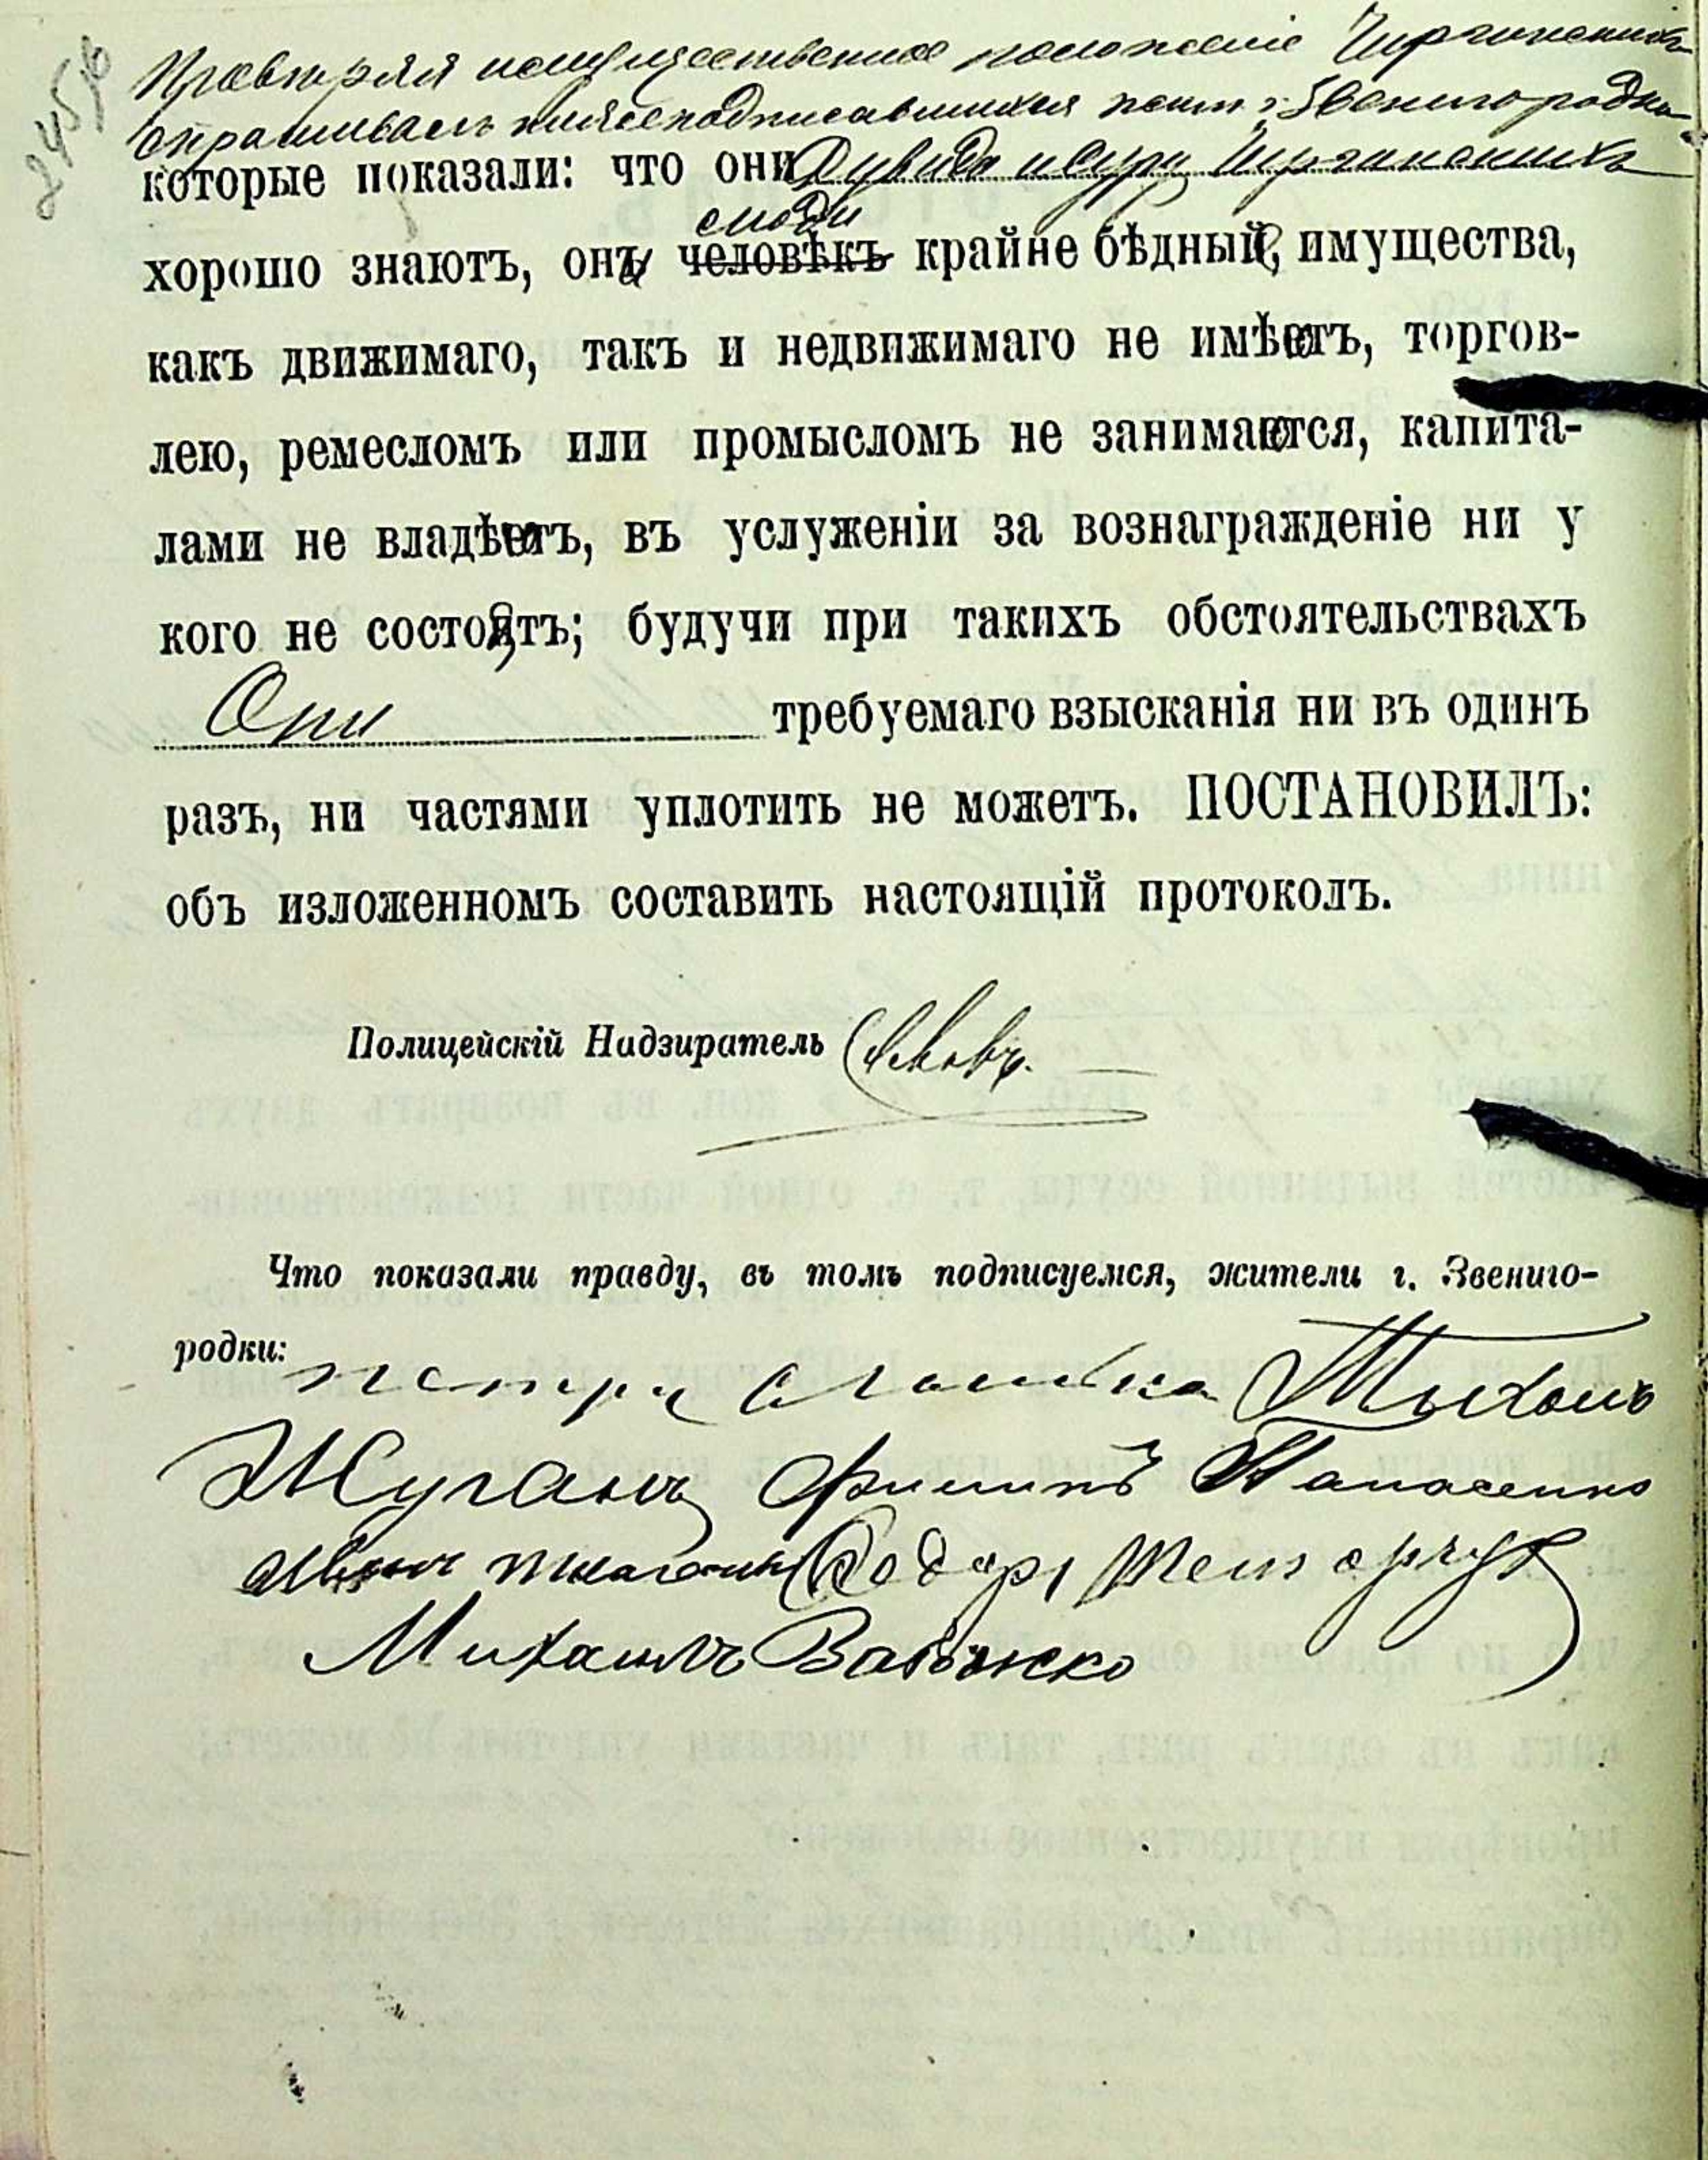 Провѣряя имущественное положеніе Чиргинскихъ
спрашивалъ нижеподписавшихся жит. г. Звенигородки
которые показали: что они Дувида и Суру Чиргинскихъ
люди
хорошо знаютъ, они человѣкъ крайне бѣдные, имущества,
какъ движимаго, такъ и недвижимаго не имѣютъ, торгов-
лею, ремесломъ или промысломъ не занимаются, капита-
лами не владѣютъ, въ услуженіи за вознагражденіе ни у
кого не состоятъ; будучи при такихъ обстоятельствахъ
Они требуемаго взысканія ни въ одинъ
разъ, ни частями уплотить не можетъ. ПОСТАНОВИЛЪ:
объ изложенномъ составить настоящій протоколъ.
Полицейскій Надзиратель
Что показали правду, въ томъ подписуемся, жители г. Звениго-
родки: Тихонъ
Жуганъ Филипъ Панасенко
Федоръ
Михаилъ